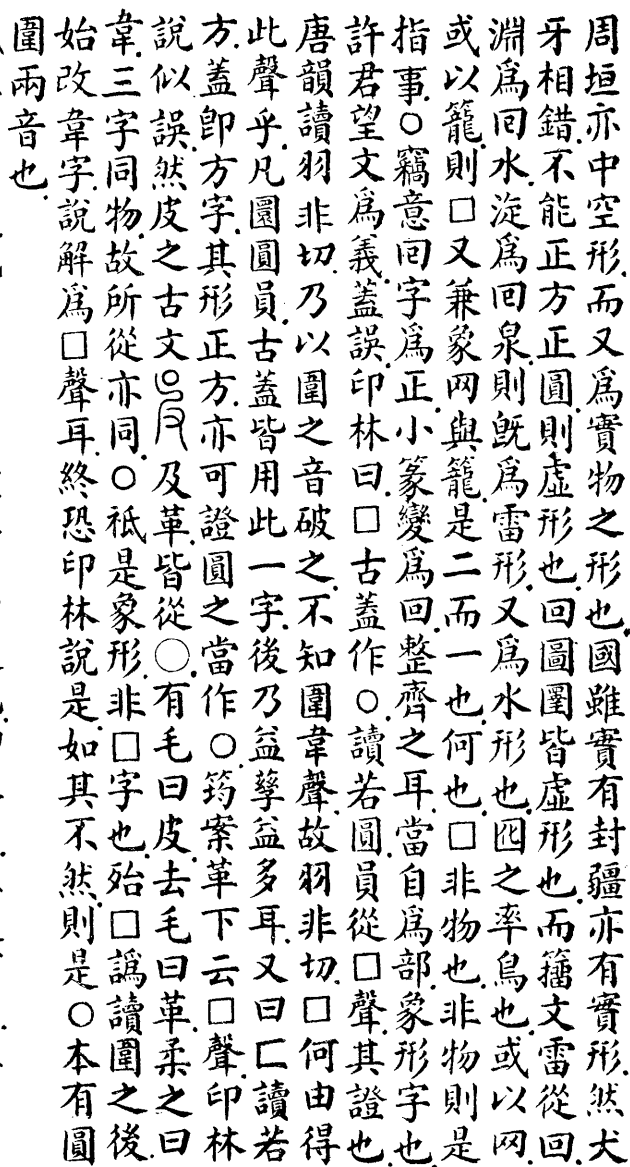 周垣亦中空形而又爲實物之形也國雖實有封疆亦有實形然犬
牙相錯不能正方正圓則虛形也回圖圍皆虛形也而籒文雷從回
淵爲囘水淀爲回泉則既爲雷形又爲水形也囮之率鳥也或以网
或以籠則囗又兼象网與籠是二而一也何也囗非物也非物則是
指事〇竊意囘字爲正小篆變爲回整齊之耳當自爲部象形字也
許君望文爲義蓋誤印林曰囗古蓋作〇讀若圓員從囗聲其證也
唐韻讀羽非切乃以圍之音破之不知圍韋聲故羽非切囗何由得
此聲乎凡圜圓員古蓋皆用此一字後乃益孳益多耳又曰匚讀若
方蓋卽方字其形正方亦可證圓之當作〇筠案革下云囗聲印林
說似誤然皮之古文及革皆從〇有毛曰皮去毛曰革柔之曰
韋三字同物故所從亦同〇祗是象形非囗字也殆囗譌讀圍之後
始改韋字說解爲囗聲耳終恐印林說是如其不然則是〇本有圓
圍兩音也